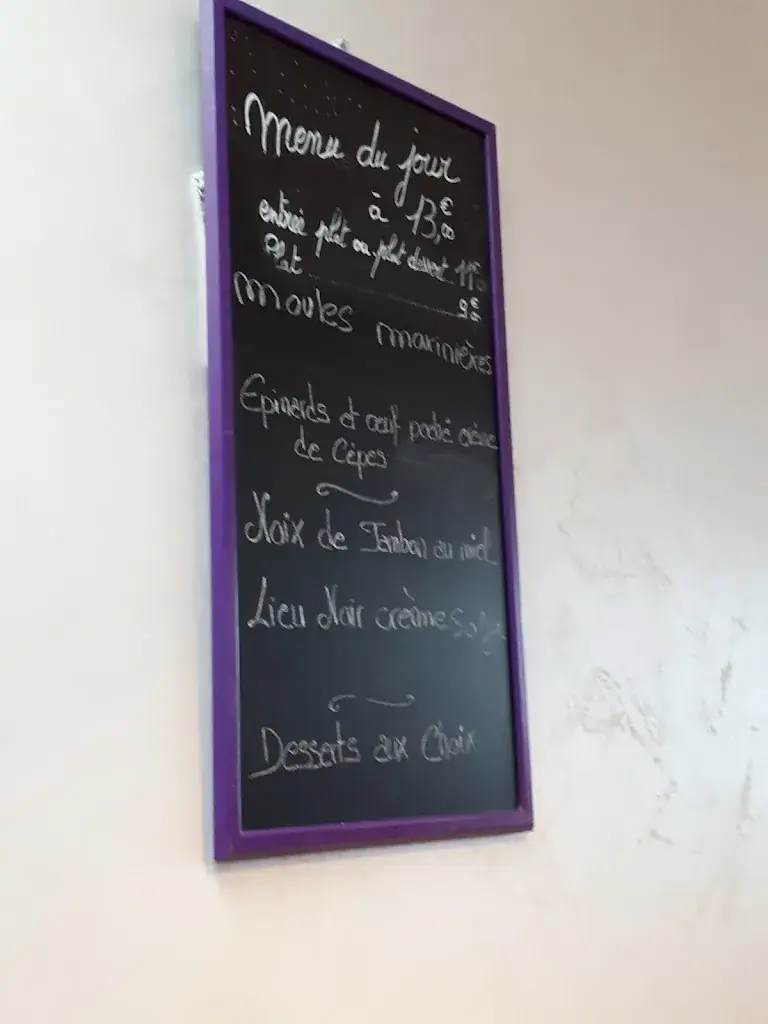 Menu du jour
à 13,00€
entrée plat ou plat dessert 11€
Plat 9€
Moules marinières
Epinards et oeuf poché crème
de Cèpes
Noix de Jambon au miel
Lieu Noir crème
Desserts aux Choix